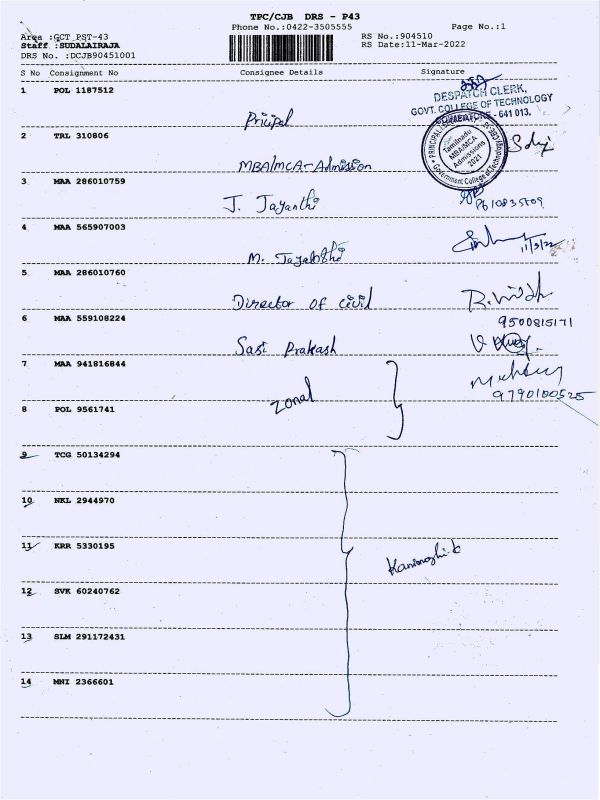 TPC/CJB DRS - P43
Phone No.:0422-3505555
Page No.:1
Area :GCT PST-43
RS No.:904510
Staff :SUDALAIRAJA
RS Date:11-Mar-2022
DRS No. :DCJB90451001
S No Consignment No Consignee Details Signature
1 POL 1187512
DESPATCH CLERK,
GOVT. COLLEGE OF TECHNOLOGY
COIMBATORE - 641 013.
Pricipal
2 TRL 310806
Tamilnadu
MBA/MCA
Admissions
2021
Government College of Technology
MBA/MCA-Admission
3 MAA 286010759
J. Jayanthi
4 MAA 565907003
11/3/22
M.
5 MAA 286010760
Director of civil
6 MAA 559108224
9500815171
Sasi Prakash
7 MAA 941816844
9790100525
zonal
8 POL 9561741
9 TCG 50134294
10 NKL 2944970
11 KRR 5330195
Kanimozhi.k
12 SVK 60240762
13 SLM 291172431
14 MNI 2366601